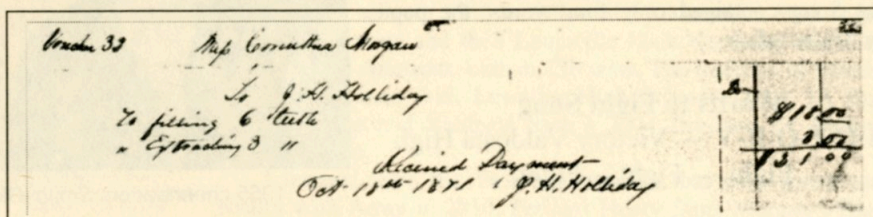 Voucher 33 Miss Corinthia Morgan
To J. H. Holliday Dr
To filling 6 teeth $18.00
" Extracting 3 " 3.00
$21.00
Received Payment
Oct 18th 1871 J. H. Holliday